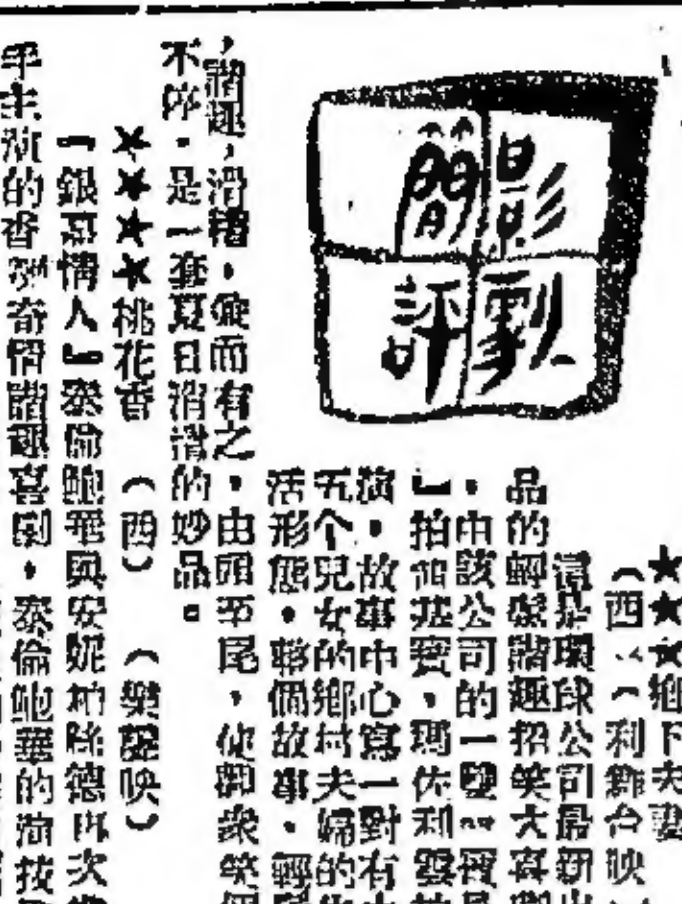 影劇簡評
★★★鄉下夫妻
(西)(利舞台映)
這是環球公司最新出
品的輕鬆諧趣招笑大喜劇
,由該公司的一雙
』拍佔基寶,瑪佐利
演,故事中心寫一對有
五个兒女的鄉村夫婦的
活形態,整個故事,輕
,諧趣,滑稽,兼而有之,由頭至尾,使觀衆笑個
不停,是一套夏日消遣的妙品。
★★★★桃花香 (西) (樂聲映)
『銀幕情人』泰倫鮑華與安妮柏絲德再次
主演的香艷奇情諧趣喜劇,泰倫鮑華的演技